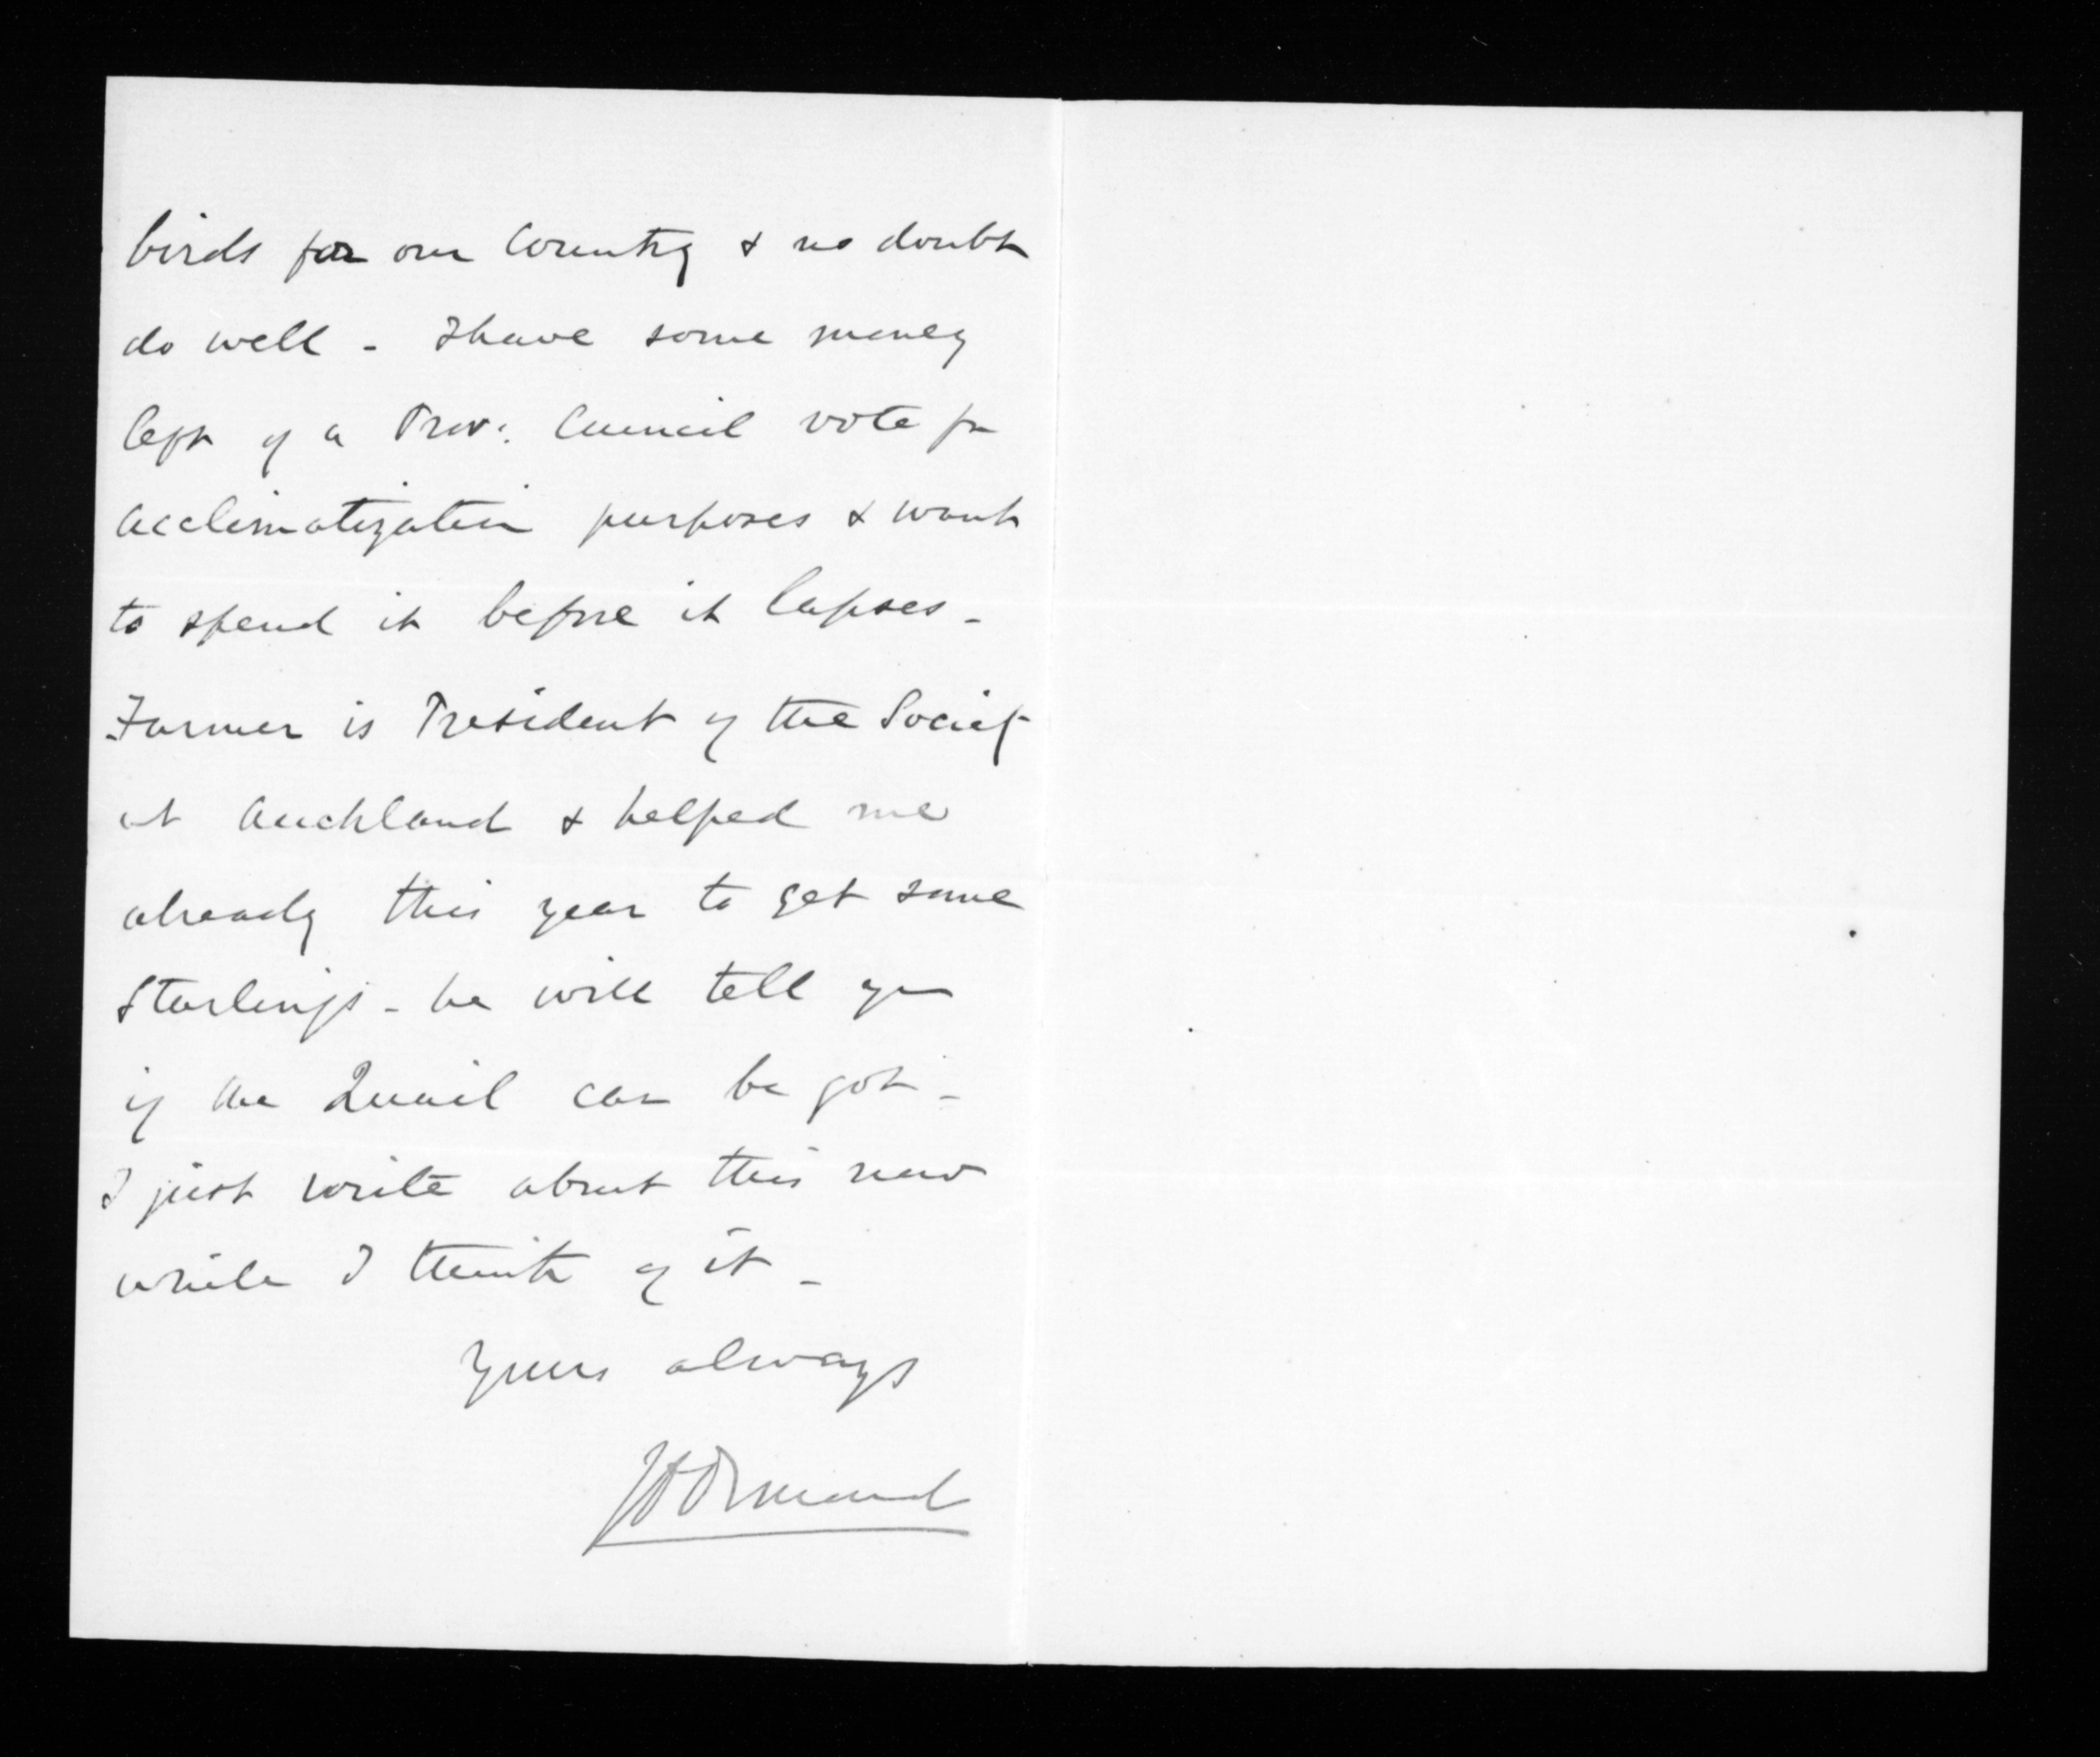 birds for our Country & no doubt
do well - I have some money
left of a Prov: Council vote for
acclimatization purposes & want
to spend it before it lapses -
Farmer is President of the Society
at Auckland & helped me
already this year to get some
Starlings - he will tell you
if the Quail can be got -
I just write about this now
while I think of it -
Yours always
JD Ormond